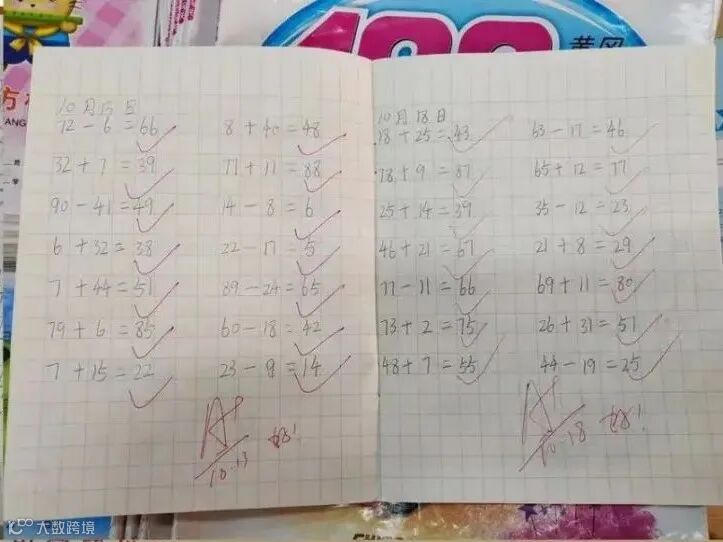 10月13日
72-6=66 8+40=48
32+7=39 77+11=88
90-41=49 14-8=6
6+32=38 22-17=5
7+44=51 89-24=65
79+6=85 60-18=42
7+15=22 23-9=14
A+
10.13 好!
10月18日
18+25=43 63-17=46
78+9=87 65+12=77
25+14=39 35-12=23
46+21=67 21+8=29
77-11=66 69+11=80
73+2=75 26+31=57
48+7=55 44-19=25
A+
10.18 好!
黄冈
方
ANG
大数跨境